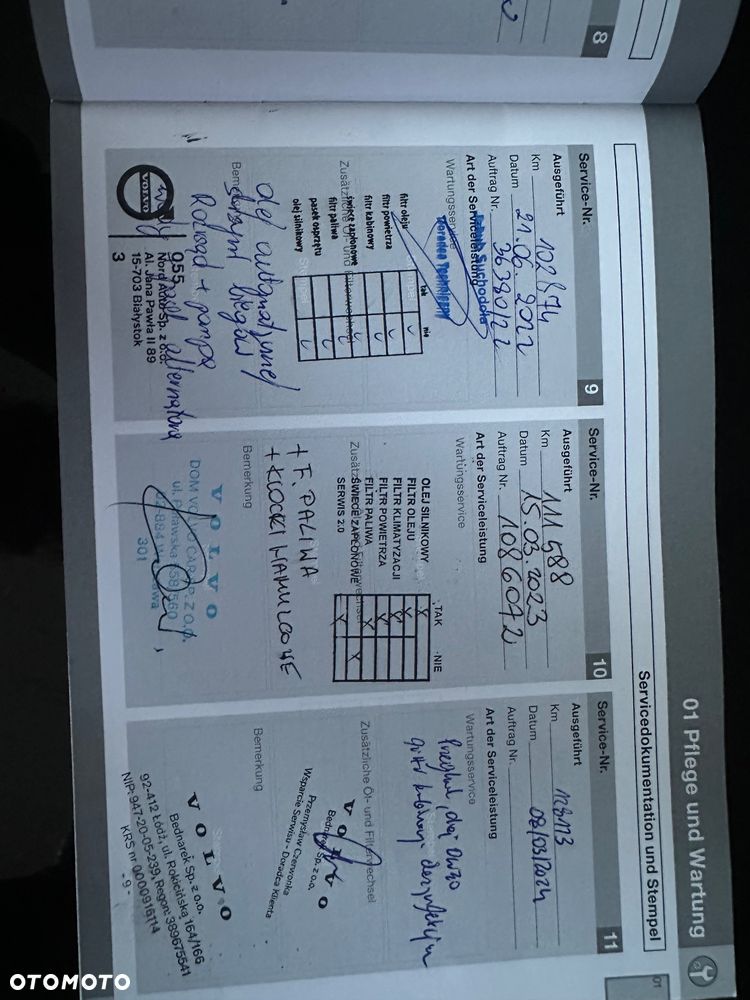 01 Pflege und Wartung
01
Servicedokumentation und Stempel
8
Service-Nr. 9
Ausgeführt
Km 102874
Datum 21.06.2022
Auftrag Nr. 36390/22
Art der Serviceleistung
Wartungsservice
Suchodoła
Doradca Techniczny
tak nie
filtr oleju
filtr powietrza
filtr kabinowy
świece zapłonowe
filtr paliwa
pasek osprzętu
olej silnikowy
Zusätzliche Öl- und Filterwechsel
olej automatycznej
skrzyni biegów
Rozrząd + pompa
pasek alternatora
VOLVO
055
Nord Auto Sp. z o.o.
Al. Jana Pawła II 89
15-703 Białystok
3
Service-Nr. 10
Ausgeführt
Km 111 588
Datum 15.03.2023
Auftrag Nr. 1086072
Art der Serviceleistung
Wartungsservice
TAK NIE
OLEJ SILNIKOWY
FILTR OLEJU
FILTR KLIMATYZACJI
FILTR POWIETRZA
FILTR PALIWA
ŚWIECE ZAPŁONOWE
SERWIS 2.0
+ F. PALIWA
+ KLOCKI HAMULCOWE
Bemerkung
VOLVO
DOM VOLVO CAR SP. Z O.O.
301
Service-Nr. 11
Ausgeführt
Km 128113
Datum 08/03/2024
Auftrag Nr.
Art der Serviceleistung
Wartungsservice
Przegląd, olej
Zusätzliche Öl- und Filterwechsel
VOLVO
Bednarek Sp. z o.o.
Przemysław Czerwonka
Wsparcie Serwisu - Doradca Klienta
Bemerkung
VOLVO
Bednarek Sp. z o.o.
92-412 Łódź, ul. Rokicińska 164/166
NIP: 947-20-05-239, Regon: 389675541
KRS nr 0000916114
- 9 -
OTOMOTO